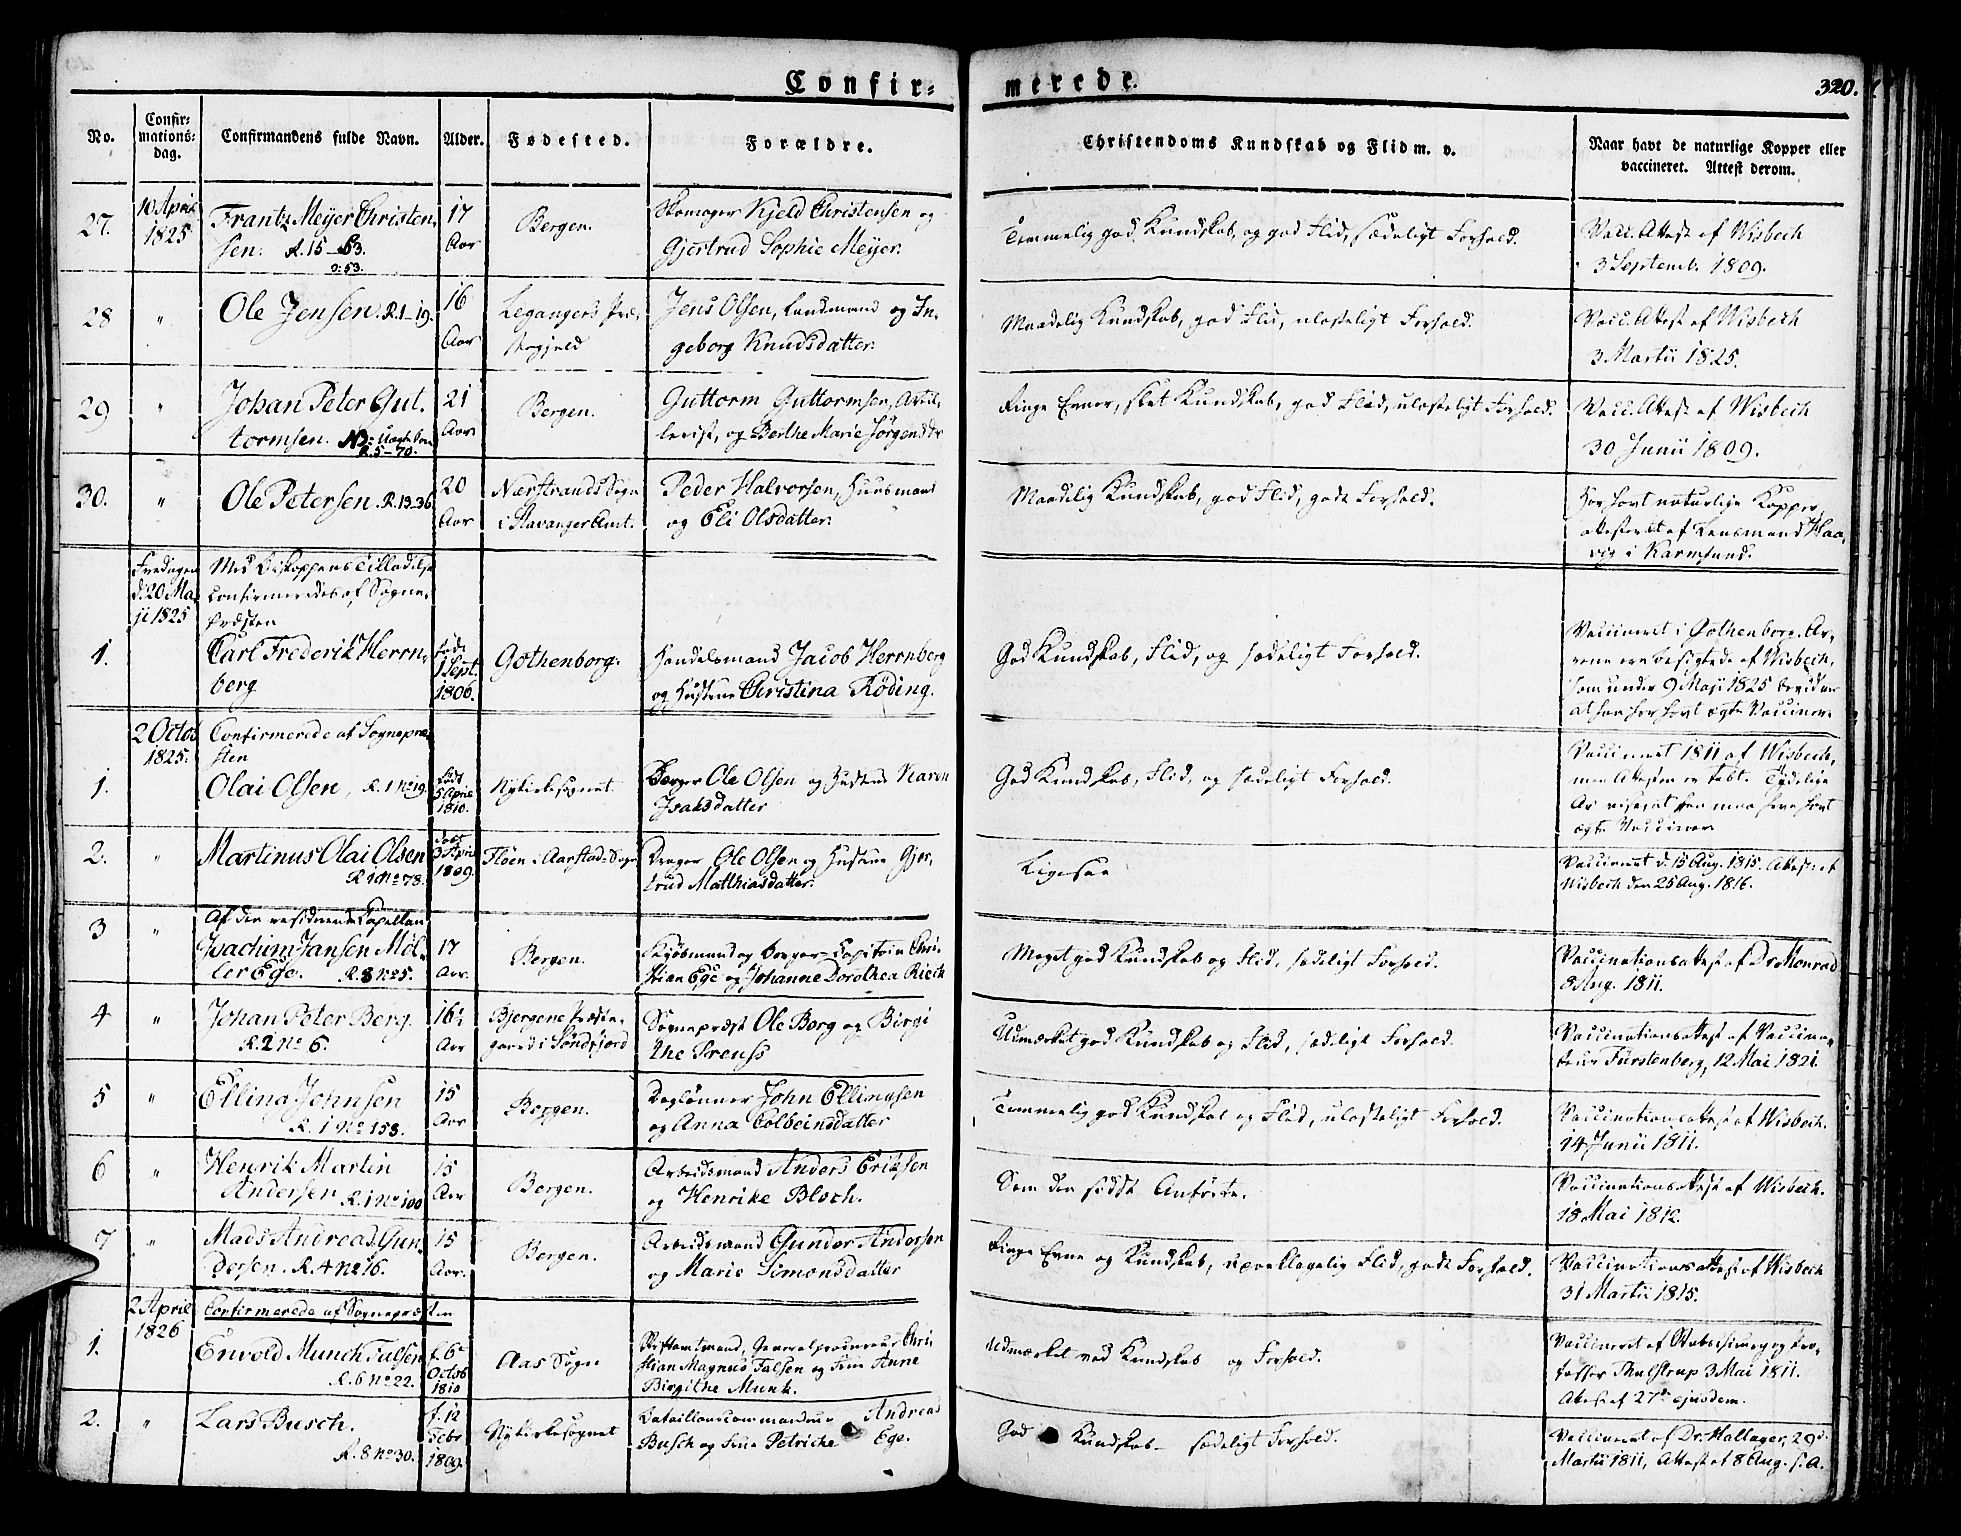 Confir-
merede.
320.
No.
Confir-
mations-
dag.
Confirmandens fulde Navn.
Alder.
Fødested.
Forældre.
Christendoms Kundskab og Flid m. v.
Naar havt de naturlige Kopper eller
vaccineret. Attest derom.
27.
10 April
1825
Frantz Meyer Christen,
sen. R. 15 - 53.
17
Aar
Bergen.
Skomager Kjeld Christensen og
Gjertrud Sophie Meyer.
Temmelig god Kundskab, og god Flid, sædeligt Forhold.
Vacc. Attest af Wisbech
3 Septemb. 1809.
28
"
Ole Jensen. R. 1-19.
16
Aar
Legangers Præ,
stegjeld
Jens Olsen, Landmand og In,
geborg Knudsdatter.
Maadelig Kundskab, god Flid, ulasteligt Forhold.
Vacc. Attest af Wisbech
3 Martii 1825.
29
"
Johan Peter Gut,
tormsen.
R. 5-70.
21
Aar
Bergen.
Guttorm Guttormsen, Artil,
lerist, og Berthe Marie Jørgensdtr
Ringe Evner, slet Kundskab, god Flid, ulasteligt Forhold.
Vacc. Attest af Wisbech
30 Junii 1809.
30.
"
Ole Petersen. R. 13-36.
20
Aar
Nærstrands Sogn
i Stavanger Amt.
Peder Halvorsen, Huusmand
og Eli Olsdatter.
Maadelig Kundskab, god Flid, godt Forhold.
Har havt naturlige Kopper,
attesteret af Lensmand Haa,
vig i Karmsund.
Fredagen
d. 20 Ma,
ji 1825
Med Biskoppens Tilladelse
confirmeredes af Sogne,
Præsten
1.
Carl Frederik Herrn,
berg
født
1 Sept.
1806.
Gothenborg.
Handelsmand Jacob Herrnberg
og Hustrue Christina Röding.
God Kundskab, Flid, og sædeligt Forhold.
Vaccineret i Gothenborg. Ar,
rene ere besigtede af Wisbech,
som under 9 Maji 1825 bevidner
at han har havt ægte Vacciner.
2 Octob
1825.
Confirmerede af Sognepræ,
sten
1.
Olai Olsen, R. 1 No 19.
født
5 April
1810.
Nykirkesognet.
Borger Ole Olsen og Hustrue Karen
Isaksdatter
God Kundskab, Flid, og sædeligt Forhold.
Vaccineret 1811 af Wisbech,
men Attesten er tabt. Tydelige
Ar viser at han maa have havt
ægte Vacciner
2.
"
Martinus Olai Olsen
R 1 No 78.
født
3 April
1809.
Fløen i Aarstad-Sogn
Drager Ole Olsen og Hustrue Gjer,
trud Matthiasdatter.
Ligesaa
Vaccineret d. 15 Aug. 1815. Attest af
Wisbech den 25 Aug. 1816.
3
"
Af den residerende Capellan
Joachim Jansen Møl-
ler Ege. R. 8 No 5.
17
Aar.
Bergen.
Kjøbmand og Borger-Capitain Chri-
stian Ege og Johanne Dorothea Rieck
Meget god Kundskab og Flid, sædeligt Forhold.
Vaccinationsattest af Dr. Monrad
8 Aug. 1811.
4
"
Johan Peter Berg.
R. 2 No 6.
16
Aar
Præste-
gaard i Søndfjord
Sognepræst Ole Borg og Birgi
the Preuss
Udmærket god Kundskab og Flid, sædeligt Forhold.
Vaccinationsattest af Vaccina-
teur Fürstenberg, 12 Mai 1821.
5
"
Elling Johnsen
R. 1 No 158.
15
Aar
Bergen.
Daglønner John Ellingsen
og Anna Colbeinsdatter
Temmelig god Kundskab og Flid, ulasteligt Forhold.
Vaccinationsattest af Wisbech.
14 Junii 1811.
6
"
Henrik Martin
Andersen R. 1 No 100
15
Aar
Bergen.
Arbeidsmand Anders Eriksen
og Henrike Bloch.
Som den sidst Anførte.
Vaccinationsattest af Wisbech.
18 Mai 1812.
7
"
Mads Andreas Gun,
dersen. R. 4 No 16.
15
Aar.
Bergen.
Arbeidsmand Gunder Andersen
og Marie Simonsdatter
Ringe Evne og Kundskab, upaaklagelig Flid, godt Forhold.
Vaccinationsattest af Wisbech
31 Martii 1815.
2 April
1826
Confirmerede af Sognepræsten
1.
Envold Munch Falsen
R. 6 No 22.
f. 6
Octob
1810
Aas Sogn
Stiftamtmand, Generalprocureur Chri,
stian Magnus Falsen og Frue Anne
Birgithe Munk.
Udmærket god Kundskab og Forhold.
Vaccineret af Stabschirurg og Pro-
fessor Thulstrup 3 Mai 1811.
Attest af 27de ejusdem.
2.
"
Lars Busch.
R. 8 No 30.
f. 12
Febr
1809.
Nykirkesognet
Batallionscommandeur Andreas
Busch og Frue Petriche Ege.
God Kundskab - sædeligt Forhold.
Vaccineret af Dr. Mallager, 29d.
Martii 1811, Attest af 8 Aug. s. A.